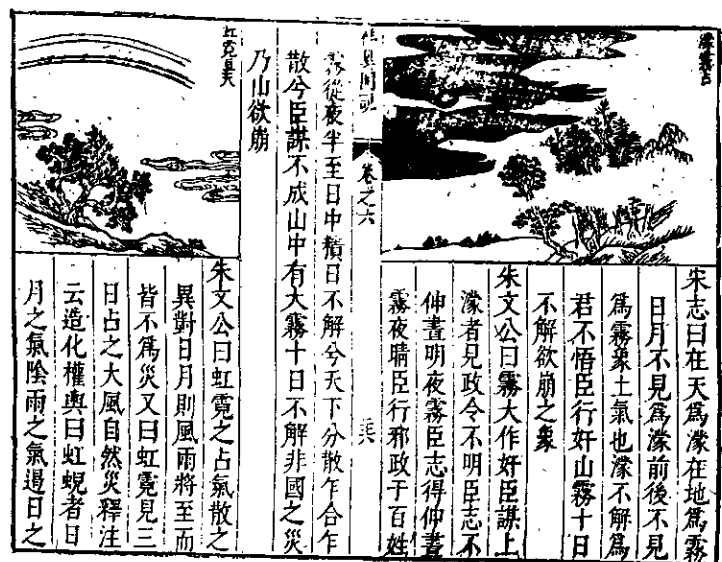 濛霧占
宋志曰在天爲濛在地爲霧
日月不見爲濛前後不見
爲霧象土氣也濛不解爲
君不悟臣行奸山霧十日
不解欲崩之象
朱文公曰霧大作奸臣謀上
濛者見政令不明臣志不
伸晝明夜霧臣志得伸晝
霧夜晴臣行邪政于百姓
卷之六
霧從夜半至日中積日不解兮天下分散乍合乍
散兮臣謀不成山中有大霧十日不解非國之災
乃山欲崩
虹霓
朱文公曰虹霓之占氣散之
異對日月則風雨將至而
皆不爲災又曰虹霓見三
日占之大風自然災釋注
云造化權輿曰虹蜺者日
月之氣陰雨之氣邊日之